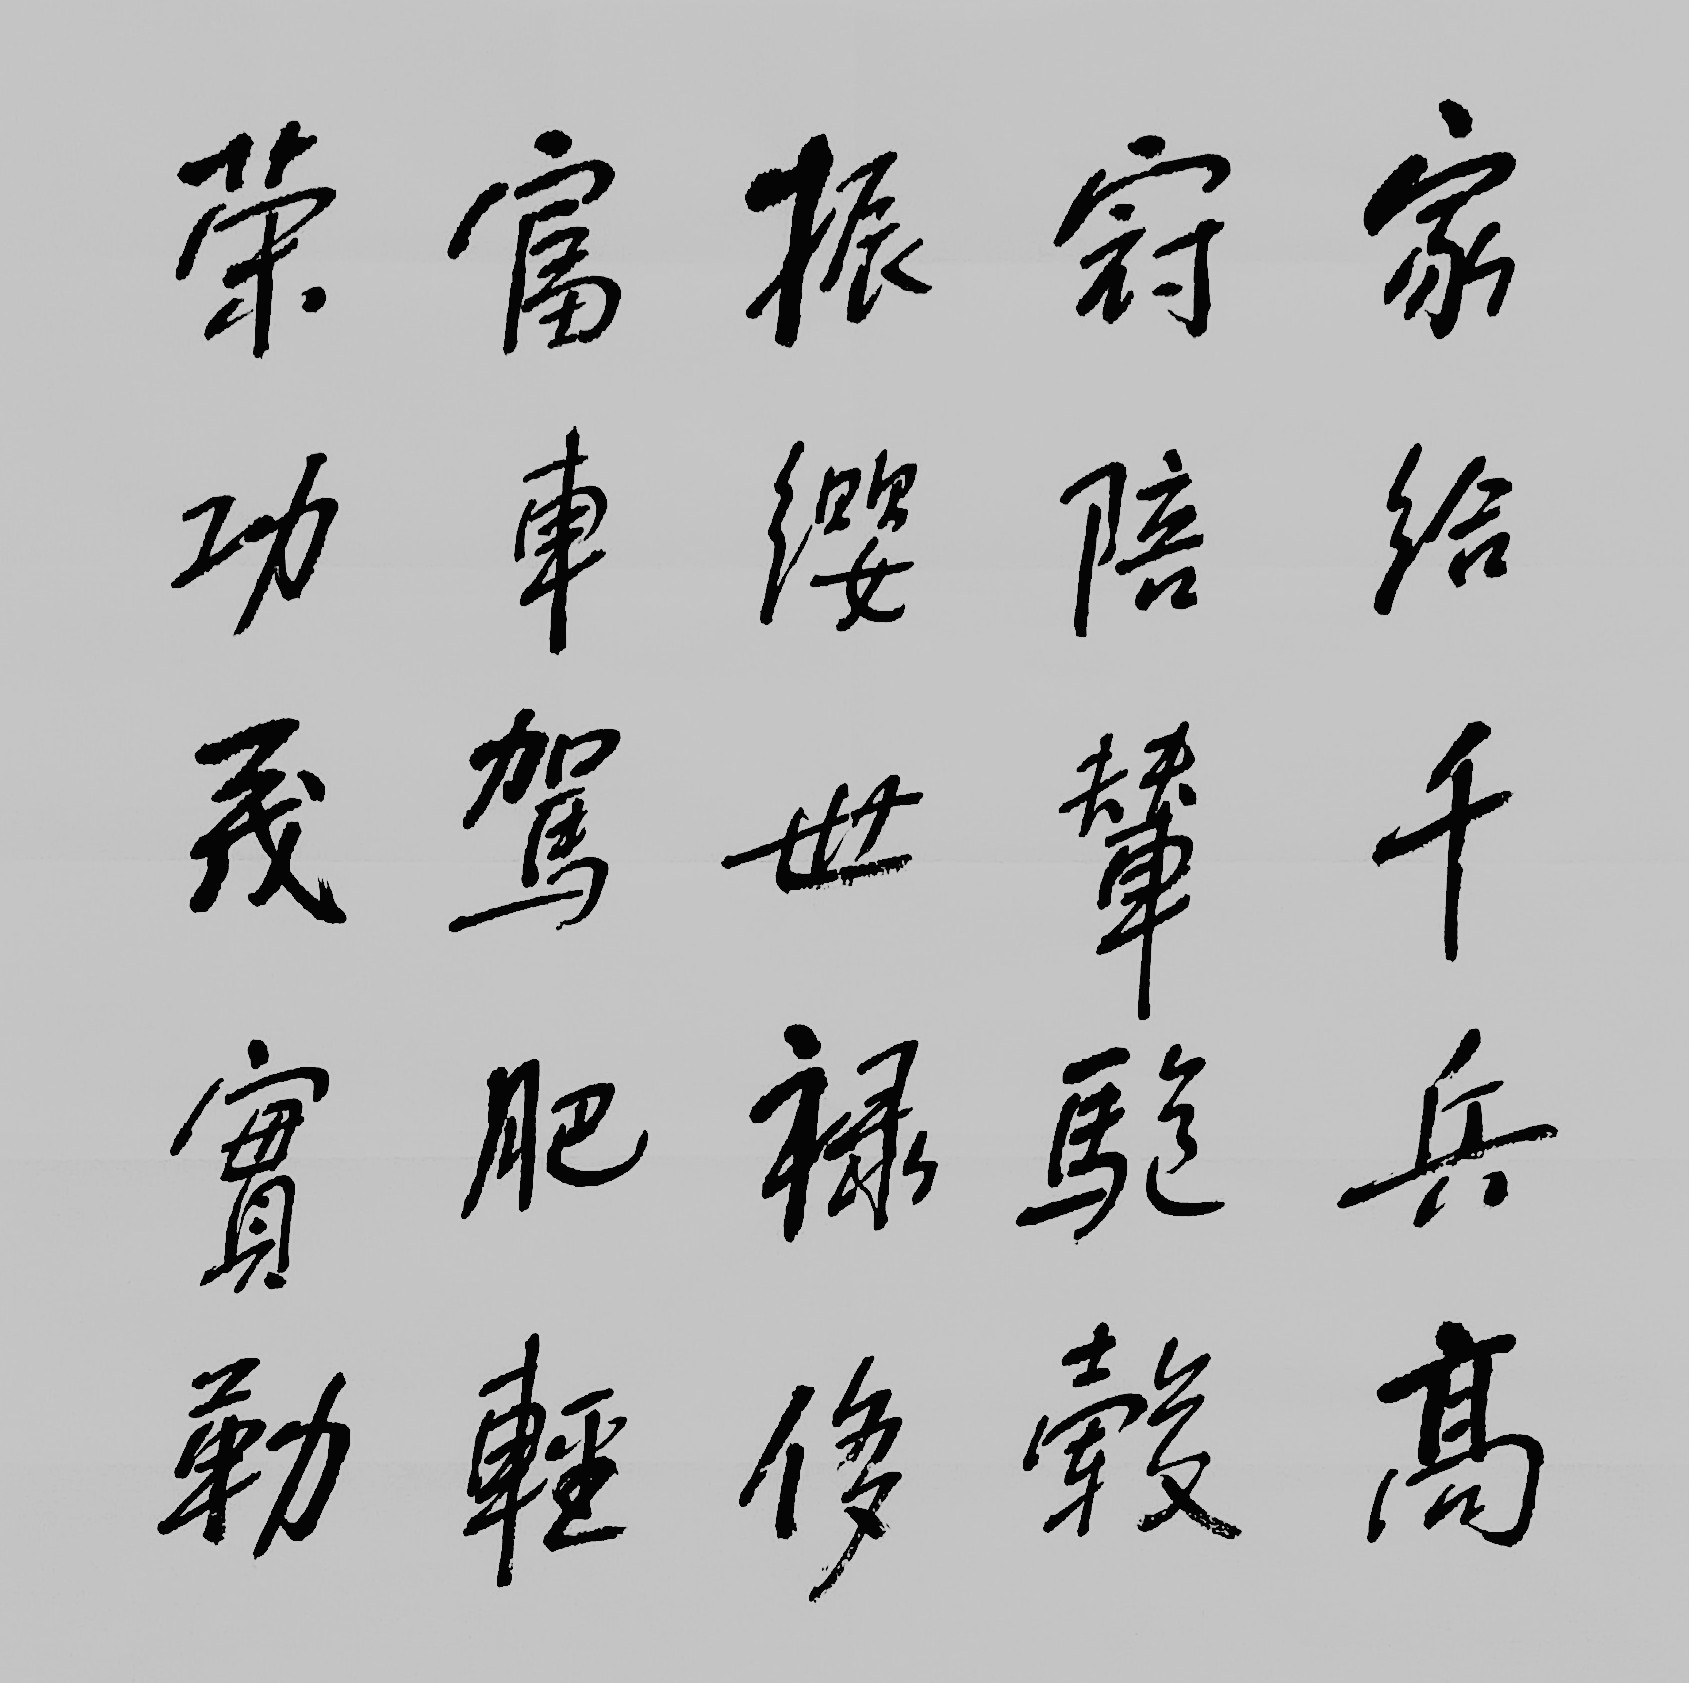 家給千兵高
冠陪輦驅轂
振纓世禄侈
富車駕肥輕
策功茂實勒